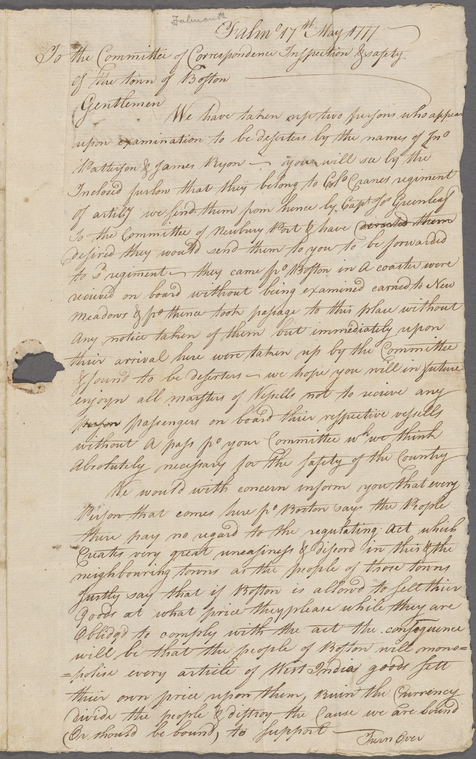 Falmouth
Falmo 17th May 1777
To the Committee of Correspondence Inspection & safety
of the town of Boston
Gentlemen
We have taken up two persons who appear
upon examination to be deserters by the names of Jno
Patterson & James Ryon — you will see by the
Inclosed furlow that they belong to Colo Cranes regiment
of artily we send them from hence by Capt Jos Greenleaf
to the Committee of Newbury Port & have directed them
desired they would send them to you to be forwarded
to sd regiment — they came fro Boston in a coaster were
recieved on board without being examined carried to New
Meadows & fro thence took passage to this place without
any notice taken of them but immediately upon
their arrival here were taken up by the Committee
& found to be deserters — we hope you will in future
enjoyn all masters of Vessells not to recieve any
passengers on board thier respective vessells
without a pass fro your Committee wh we think
Absolutely necessary for the safety of the Country
We would with concern inform you that every
Person that comes here fro Boston says the People
there pay no regard to the regulating Act which
Creates very great uneasiness & discord in this & the
neighbouring towns as the people of those towns
Justly say that if Boston is allowd to sell thier
Goods at what price they please while they are
Obliged to comply with the act the consequence
will be that the people of Boston will mono=
=polise every article of West India goods sett
their own price upon them, Ruin the Currency
divide the people & distroy the Cause we are bound
Or should be bound, to support —
Turn Over